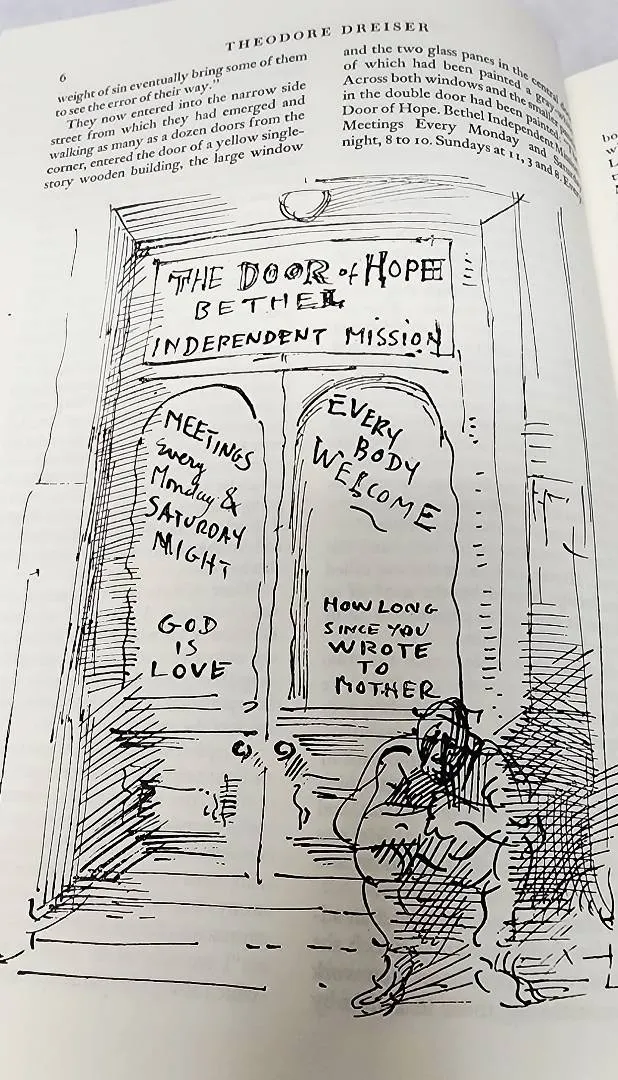 THEODORE DREISER
6
weight of sin eventually bring some of them
to see the error of their way."
They now entered into the narrow side
street from which they had emerged and
walking as many as a dozen doors from the
corner, entered the door of a yellow single-
story wooden building, the large window
and the two glass panes in the central
of which had been painted a
Across both windows and the smaller
in the double door had been painted
Door of Hope. Bethel Independent
Meetings Every Monday and
night, 8 to 10. Sundays at 11, 3 and 8.
THE DOOR of HOPE
BETHEL
INDEPENDENT MISSION
MEETINGS
Every
Monday &
SATURDAY
NIGHT
GOD
IS
LOVE
EVERY
BODY
WELCOME
HOW LONG
SINCE YOU
WROTE
TO
MOTHER